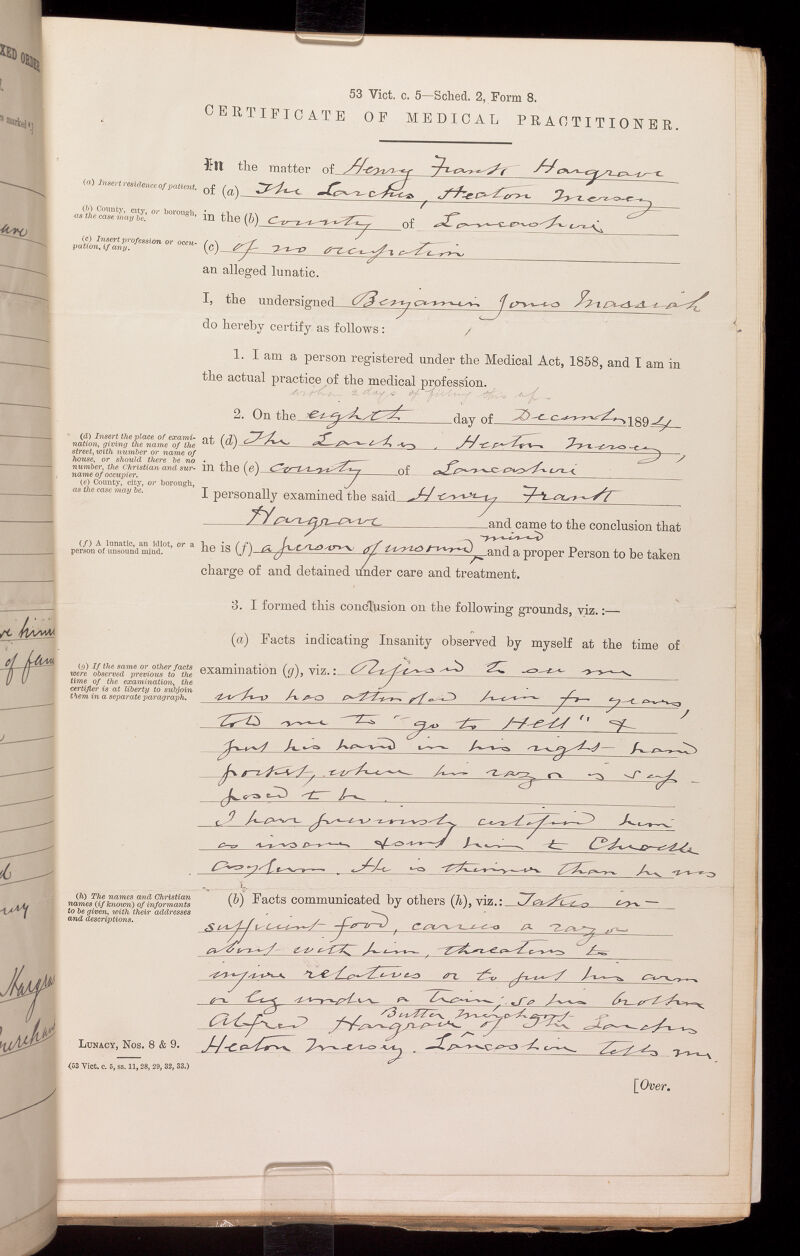 XED ORDER
s marked *]
53 Vict. c. 5—Sched. 2, Form 8.
CERTIFICATE OF MEDICAL PRACTITIONER.
In the matter of Henry Frank Hargrave
(a) Insert residence of patient.
of (a) The Larches, Heaton Mersey
(b) County, city, or borough, as the case may be.
in the (b) county of Lancashire
(c) Insert profession or occupation, if any.
(c) of no occupation
an alleged lunatic.
I, the undersigned Benjamin Jones Massiah
do hereby certify as follows:
1. I am a person registered under the Medical Act, 1858, and I am in
the actual practice of the medical profession.
within 2 days of
2. On the eighth day of December 1894
(d) Insert the place of examination, giving the name of the street, with number or name of house, or should there be no number, the Christian and surname of occupier.
at (d) The Larches, Heaton Mersey,
(e) County, city, or borough, as the case may be.
in the (e) county of Lancashire
I personally examined the said Henry Frank
Hargrave and came to the conclusion that
(f) A lunatic, an idiot, or a person of unsound mind.
mind
he is (f) a person of unsound ^ and a proper Person to be taken
charge of and detained under care and treatment.
3. I formed this conclusion on the following grounds, viz.:—
(a) Facts indicating Insanity observed by myself at the time of
(g) If the same or other facts were observed previous to the time of the examination, the certifier is at liberty to subjoin them in a separate paragraph.
examination (g), viz.: Refused to see me
who has attended him for years,
told me to "go to Hell" &
put his hand in his right hand
pocket, where his razor is sup-
posed to be.
I have previously certified him
as insane & sent him to Cheadle
Asylum. He is thinner than he was
(h) The names and Christian names (if known) of informants to be given, with their addresses and descriptions.
(b) Facts communicated by others (h), viz.: Takes in-
sufficient food, carries a razor
about with him, threatens to
injure relatives or to put his arm
or leg under a train; so his brother
Butter Merchant
Alfred Hargrave ^ of The Larches
Heaton Mersey. Lancashire tells me.
LUNACY, Nos. 8 & 9.
(53 Vict. c. 5, ss. 11, 28, 29, 32, 33.)
[Over.